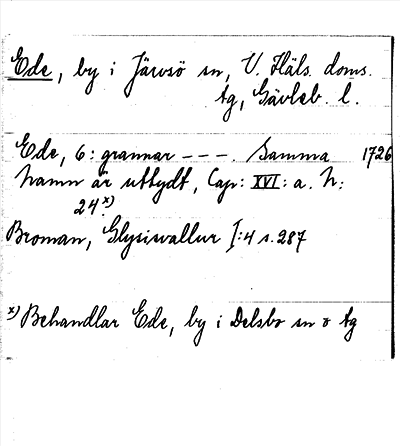 Ede, by i Järvsö sn, V. Häls. doms.
tg, Gävleb. l.
Ede, 6: grannar - - -. Samma 1726
namn är uttydt, Cap: XVI: a. N:
24.x)
Broman, Glysisvallur I:4 s. 287
x) Behandlar Ede, by i Delsbo sn o tg